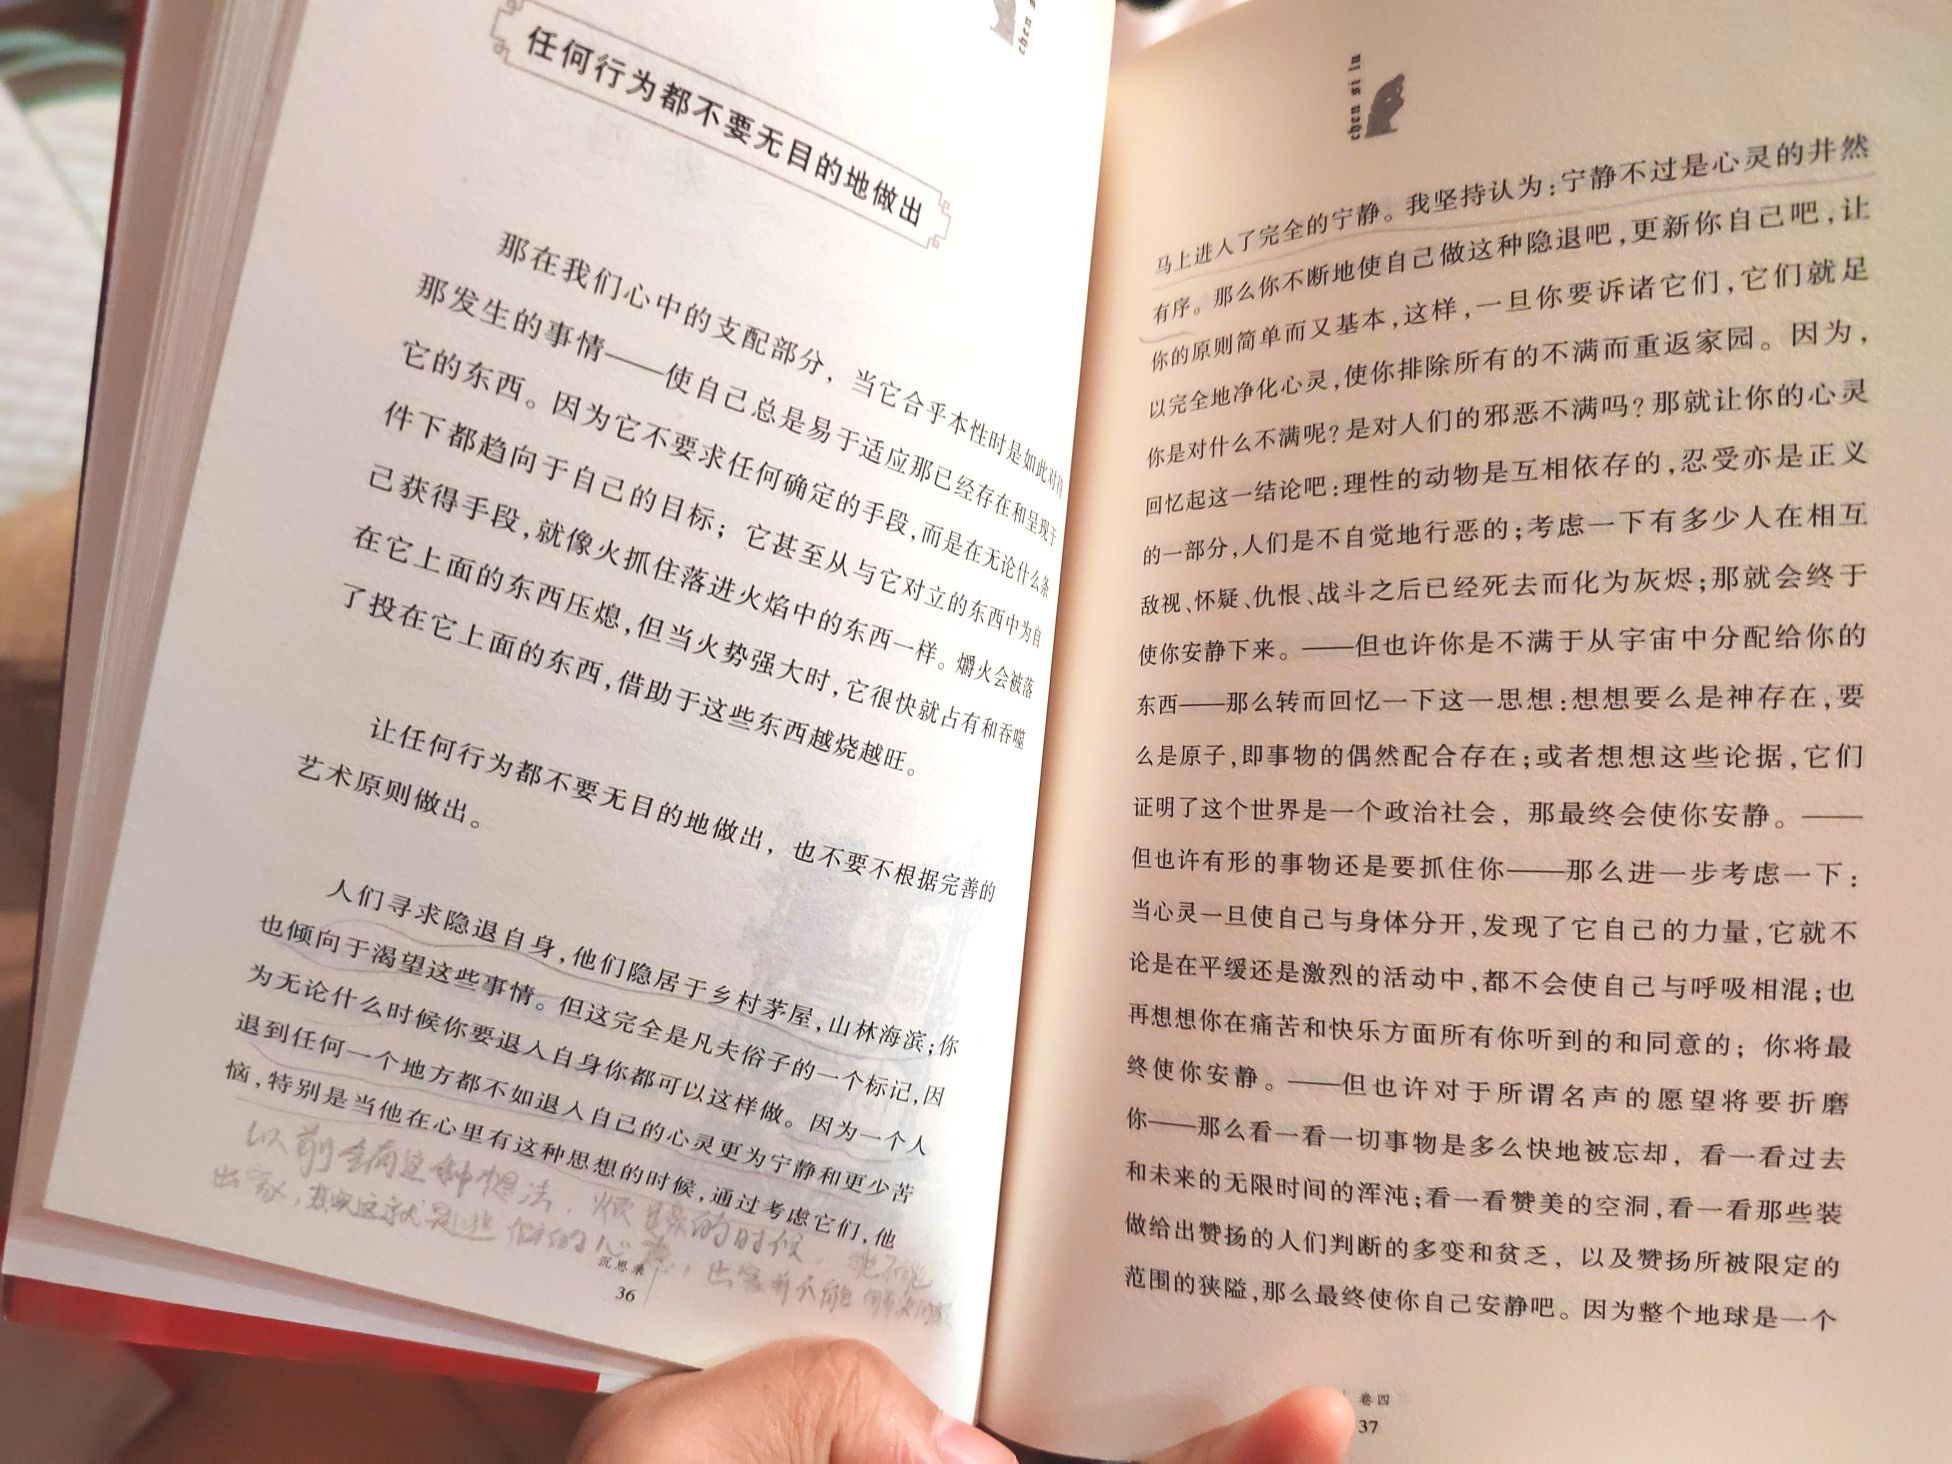 任何行为都不要无目的地做出
那在我们心中的支配部分，当它合乎本性时是如此对待
那发生的事情——使自己总是易于适应那已经存在和呈现于
它的东西。因为它不要求任何确定的手段，而是在无论什么条
件下都趋向于自己的目标；它甚至从与它对立的东西中为自
己获得手段，就像火抓住落进火焰中的东西一样。爝火会被落
在它上面的东西压熄，但当火势强大时，它很快就占有和吞噬
了投在它上面的东西，借助于这些东西越烧越旺。
让任何行为都不要无目的地做出，也不要不根据完善的
艺术原则做出。
人们寻求隐退自身，他们隐居于乡村茅屋，山林海滨；你
也倾向于渴望这些事情。但这完全是凡夫俗子的一个标记，因
为无论什么时候你要退入自身你都可以这样做。因为一个人
退到任何一个地方都不如退入自己的心灵更为宁静和更少苦
恼，特别是当他在心里有这种思想的时候，通过考虑它们，他
以前会有这种想法，烦恼的时候
出家，其实这
出家并不能
沉思录
36
chen si lu
马上进入了完全的宁静。我坚持认为：宁静不过是心灵的井然
有序。那么你不断地使自己做这种隐退吧，更新你自己吧，让
你的原则简单而又基本，这样，一旦你要诉诸它们，它们就足
以完全地净化心灵，使你排除所有的不满而重返家园。因为，
你是对什么不满呢？是对人们的邪恶不满吗？那就让你的心灵
回忆起这一结论吧：理性的动物是互相依存的，忍受亦是正义
的一部分，人们是不自觉地行恶的；考虑一下有多少人在相互
敌视、怀疑、仇恨、战斗之后已经死去而化为灰烬；那就会终于
使你安静下来。——但也许你是不满于从宇宙中分配给你的
东西——那么转而回忆一下这一思想：想想要么是神存在，要
么是原子，即事物的偶然配合存在；或者想想这些论据，它们
证明了这个世界是一个政治社会，那最终会使你安静。——
但也许有形的事物还是要抓住你——那么进一步考虑一下：
当心灵一旦使自己与身体分开，发现了它自己的力量，它就不
论是在平缓还是激烈的活动中，都不会使自己与呼吸相混；也
再想想你在痛苦和快乐方面所有你听到的和同意的；你将最
终使你安静。——但也许对于所谓名声的愿望将要折磨
你——那么看一看一切事物是多么快地被忘却，看一看过去
和未来的无限时间的浑沌；看一看赞美的空洞，看一看那些装
做给出赞扬的人们判断的多变和贫乏，以及赞扬所被限定的
范围的狭隘，那么最终使你自己安静吧。因为整个地球是一个
卷四
37